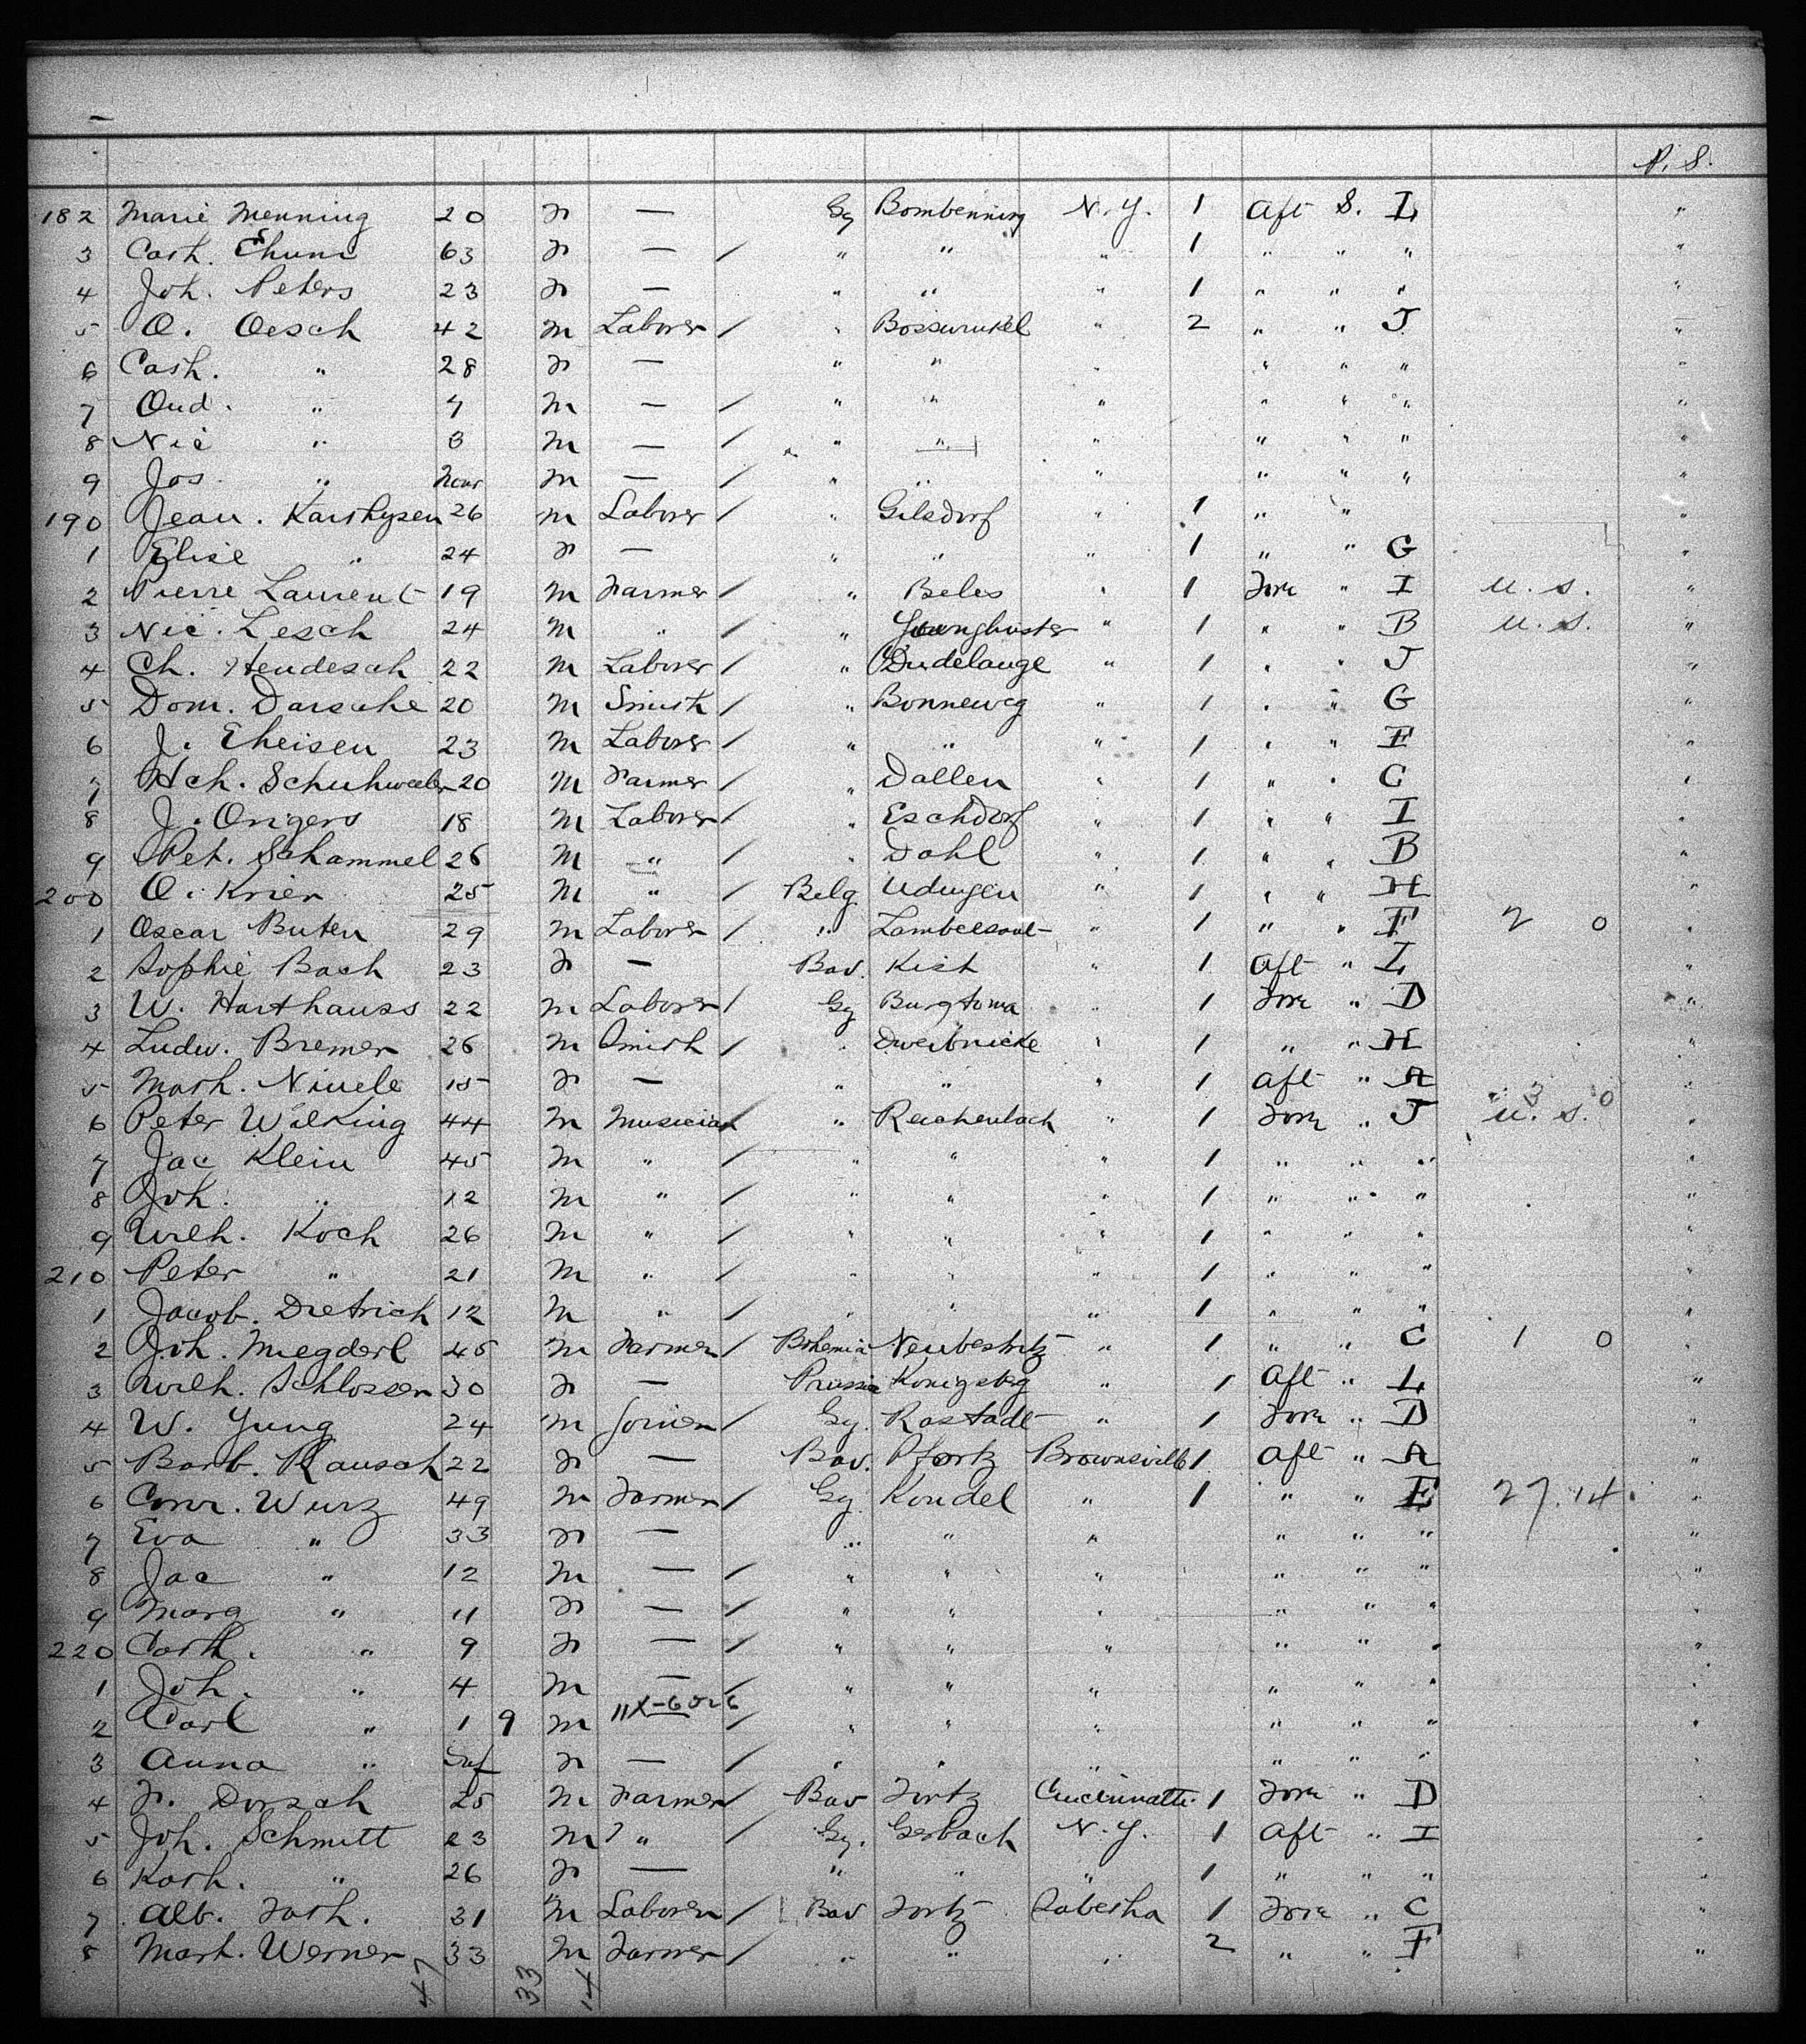 P. S.
182 Marie Menning 20 F — Gy Bombenning N.Y. 1 Aft S. L "
3 Cath. 63 F — / " " " 1 " " " "
4 Joh. Peters 23 F — " " " 1 " " " "
5 O. Oesch 42 m Laborer / " " 2 " " J "
6 Cath. " 28 F — " " " " " " "
7 Oud. " 7 m — / " " " " " " "
8 Nic " 3 m — / " " " " " " "
9 Jos. " m — / " " " " " " "
190 Jean. Karthysen 26 m Laborer / " Gilsdorf " 1 " " "
1 Elise " 24 F — " " " 1 " " G "
2 Pierre Laurent 19 m Farmer / " Beles " 1 Fore " I U.S. "
3 Nic. Lesch 24 m " / " " 1 " " B U.S. "
4 Ch. Hendesch 22 m Laborer / " Dudelange " 1 " " J "
5 Dom. Darsche 20 m Smith / " Bonneweg " 1 " " G "
6 J. Theisen 23 m Laborer / " " " 1 " " F "
7 Hch. Schuhweeler 20 m Farmer / " Dallen " 1 " " C "
8 J. Origers 18 m Laborer / " Eschdorf " 1 " " I "
9 Pet. Schammel 26 m " / " Dahl " 1 " " B "
200 O. Krier 25 m " / Belg. Udingen " 1 " " H "
1 Oscar Buten 29 m Laborer / " " 1 " " F 2 0 "
2 Sophie Bach 23 F — Bav. Kish " 1 Aft " L "
3 W. Harthauss 22 m Laborer / Gy Burgtoma " 1 Fore " D "
4 Ludw. Bremer 26 m Smith / " Dweibnicke " 1 " " H "
5 Math. Niuele 15 F — " " " 1 Aft " A "
6 Peter Wilking 44 m Musician / " Reichenbach " 1 Fore " J U.S. 3 0 "
7 Jac Klein 45 m " / " " " 1 " " " "
8 Joh. " 12 m " / " " " 1 " " " "
9 Wilh. Koch 26 m " / " " " 1 " " " "
210 Peter " 21 m " / " " " 1 " " " "
1 Jacob. Dietrich 12 m " / " " " 1 " " " "
2 Joh. Miegderl 45 m Farmer / Bohemia Neubestritz " 1 " " C 1 0 "
3 Wilh. Schlosser 30 F — Prussia Konigsbg " 1 Aft " L "
4 W. Jung 24 m Joiner / Gy. Rastadt " 1 Fore " D "
5 Barb. Rausch 22 F — Bav. Pfortz Brownsville 1 Aft " A "
6 Conr. Wurz 49 m Farmer / Gy Kondel " 1 " " E 27.14. "
7 Eva " 33 F — " " " " " " "
8 Jac " 12 m — / " " " " " " "
9 Marg " 11 F — / " " " " " " "
220 Cath. " 9 F — / " " " " " " "
1 Joh. " 4 m — / " " " " " " "
11X-6026
2 Carl " 1 9 m — / " " " " " " "
3 Anna " Inf F — / " " " " " " "
4 F. Dorsch 25 m Farmer / Bav Fortz Cincinnatti. 1 Fore " D "
5 Joh. Schmitt 23 m " / Gy. Gerbach N.Y. 1 Aft " I "
6 Kath. " 26 F — " " " 1 " " " "
7 Alb. Foth. 31 m Laborer / Bav Fortz Sabetha 1 Fore " C "
8 Mart. Werner 33 m Farmer / " " " 2 " " F "
47 33 14